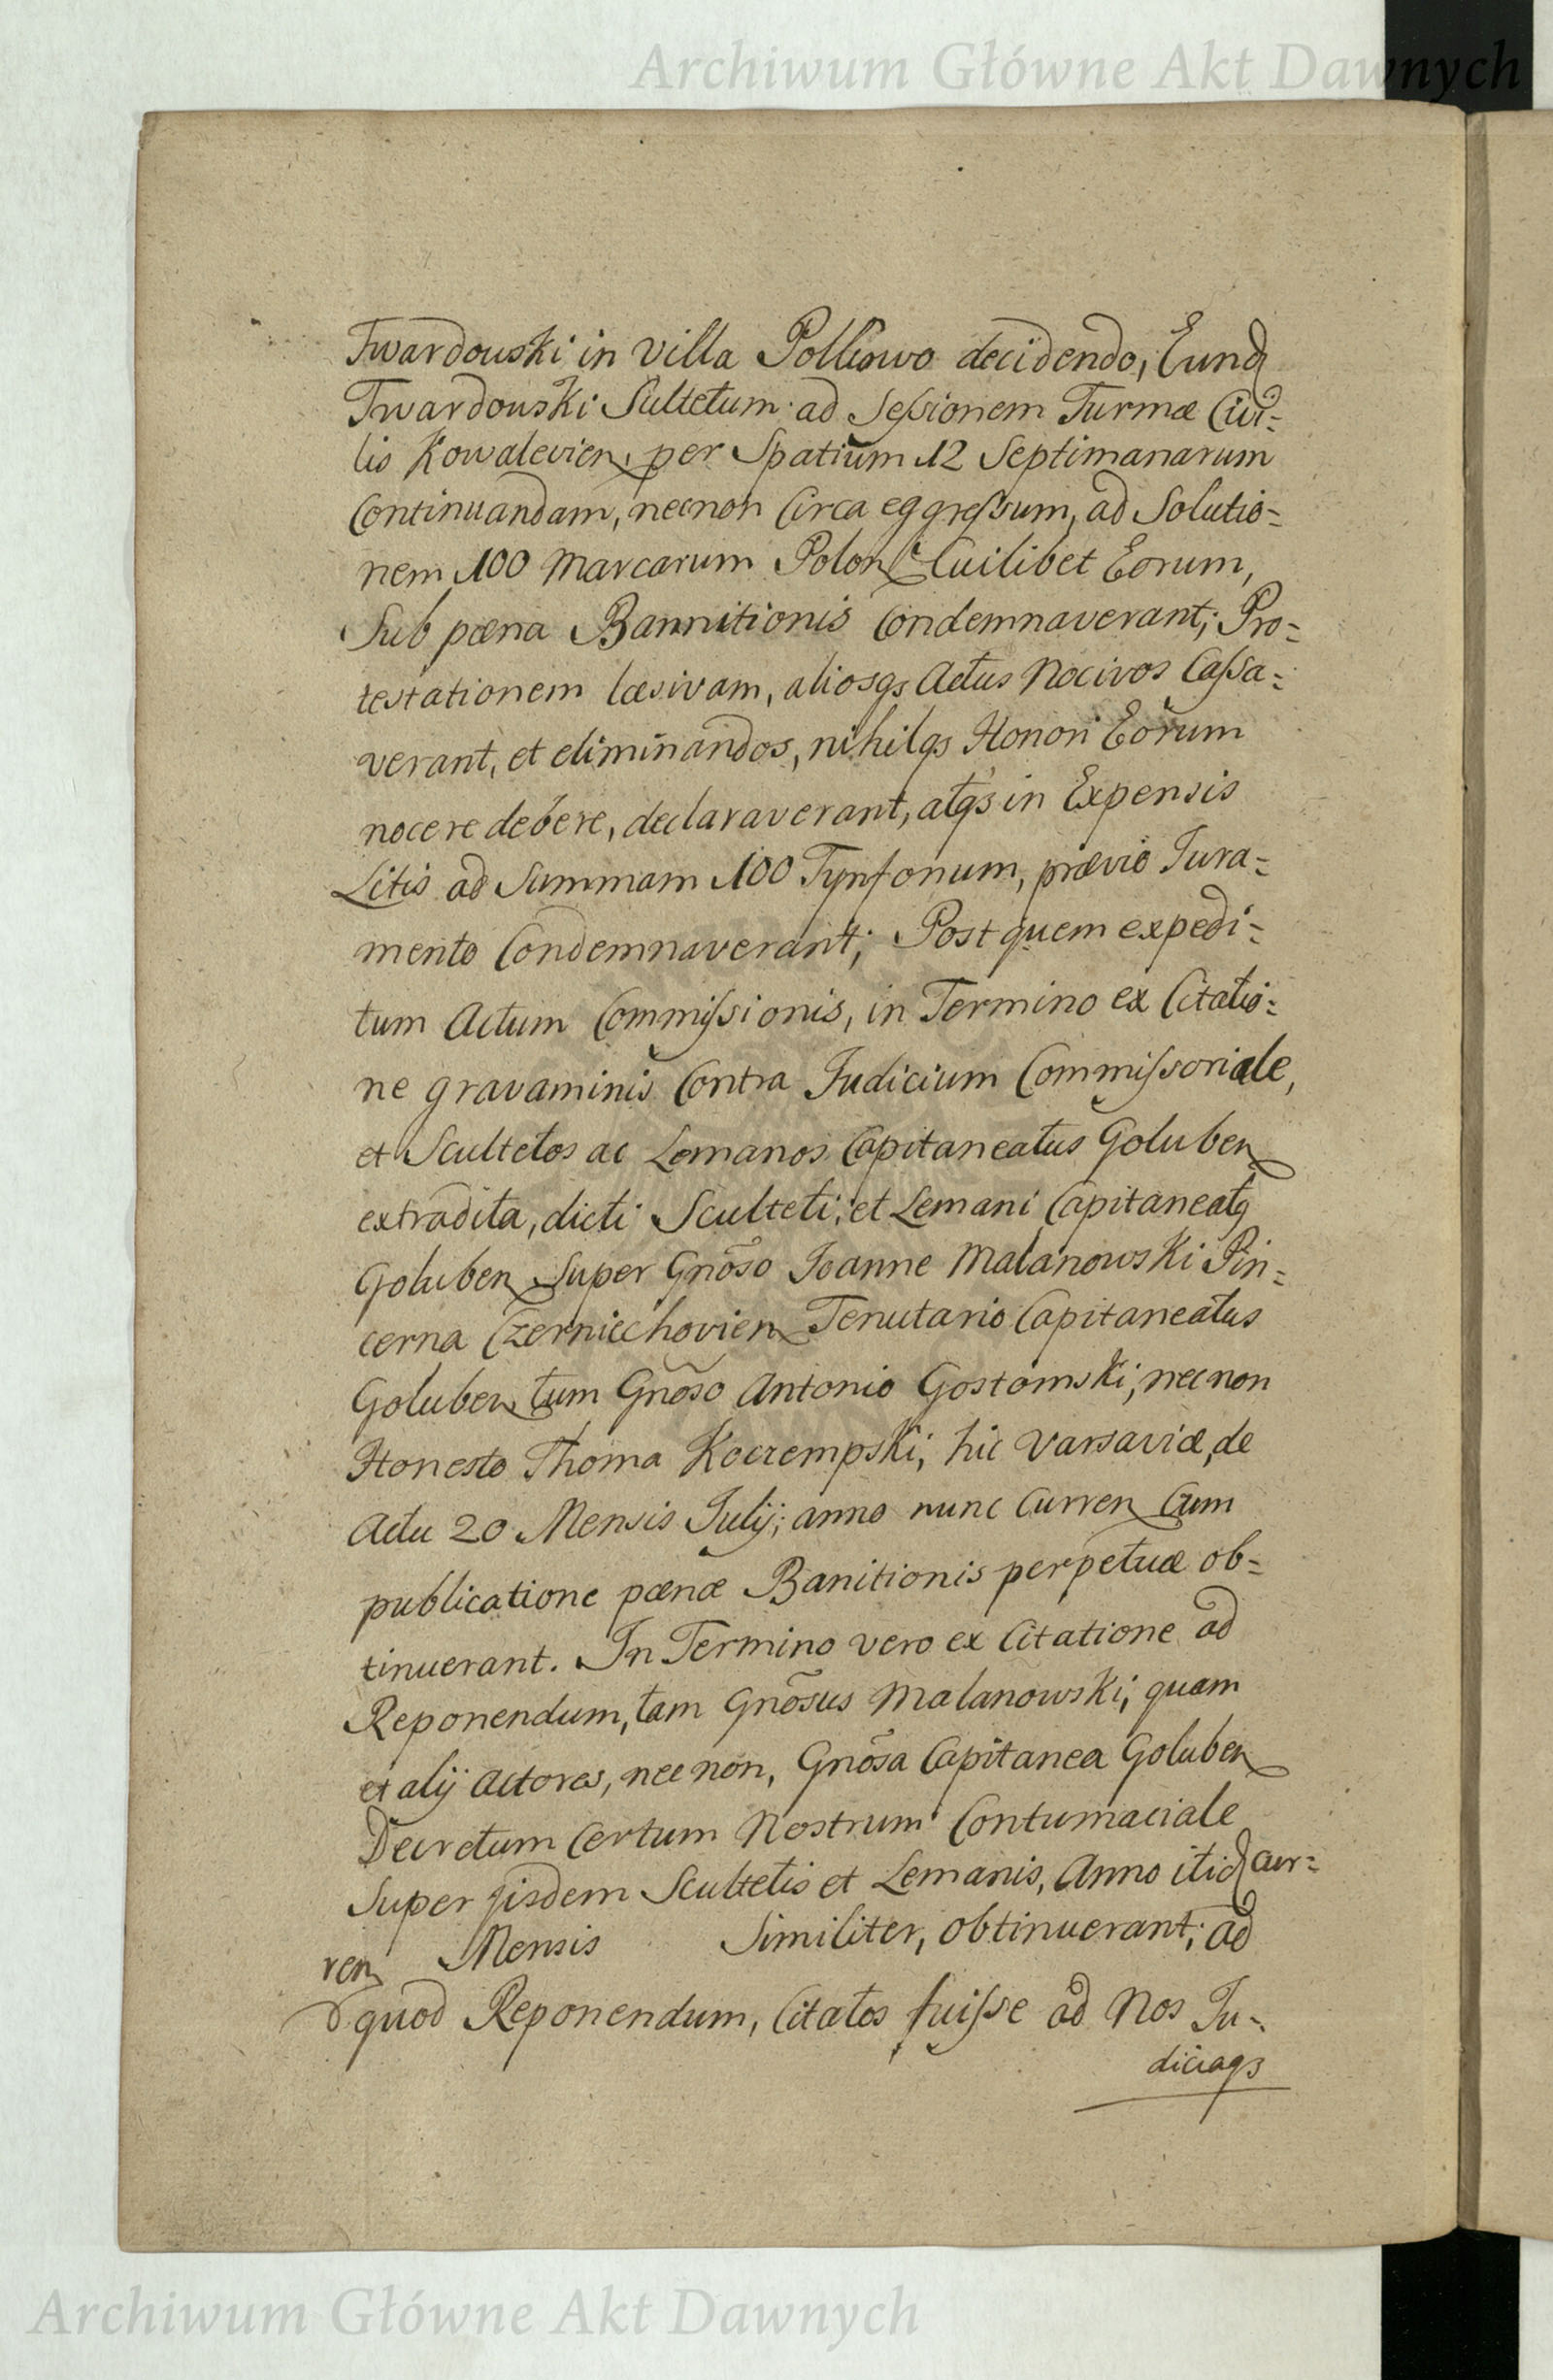 Archiwum Główne Akt Dawnych
Twardouski in villa Polluowo decidendo, Eund
Twardouski Sultetum ad Seſsionem Turmæ Civi=
lis Kowalevien per Spatium 12 Septimanarum
Continuandam, necnon Circa eggreſsum, ad Solutio=
nem 100 Marcarum Polon Cuilibet Eorum,
Sub pœna Bannitionis Condemnaverant; Pro=
testationem læsivam, aliosqs Actus Nocivos Caſsa=
verant, et eliminandos, nihilqs Honori Eorum
nocere debere, declaraverant, atqs in Expensis
Litis ad Summam 100 Tynfonum, prævio Jura=
mento Condemnaverant; Post quem expedi=
tum Actum Commiſsionis, in Termino ex Citatio=
ne gravaminis Contra Judicium Commiſsoriale,
et Scultetos ac Lemanos Capitaneatus Goluben
extradita, dicti Sculteti, et Lemani Capitaneatq
Goluben Super Gnõso Joanne Malanowski Pin=
cerna Czerniechovien Tenutario Capitaneatus
Goluben tum Gnõso Antonio Gostomski, necnon
Honesto Thoma Koczempski, hic Varsaviæ, de
Actu 20 Mensis Julij, anno nunc Curren Cum
publicatione pœnæ Banitionis perpetuæ ob=
tinuerant. In Termino vero ex Citatione ad
Reponendum, tam Gnõsus Malanowski, quam
et alij Actores, necnon, Gnõsa Capitanea Goluben
Decretum Certum Nostrum Contumaciale
Super ijsdem Scultetis et Lemanis, Anno itid cur=
ren Mensis Similiter, obtinuerant; ad
quod Reponendum, Citatos fuiſse ad Nos Ju=
diciaqs
Archiwum Główne Akt Dawnych